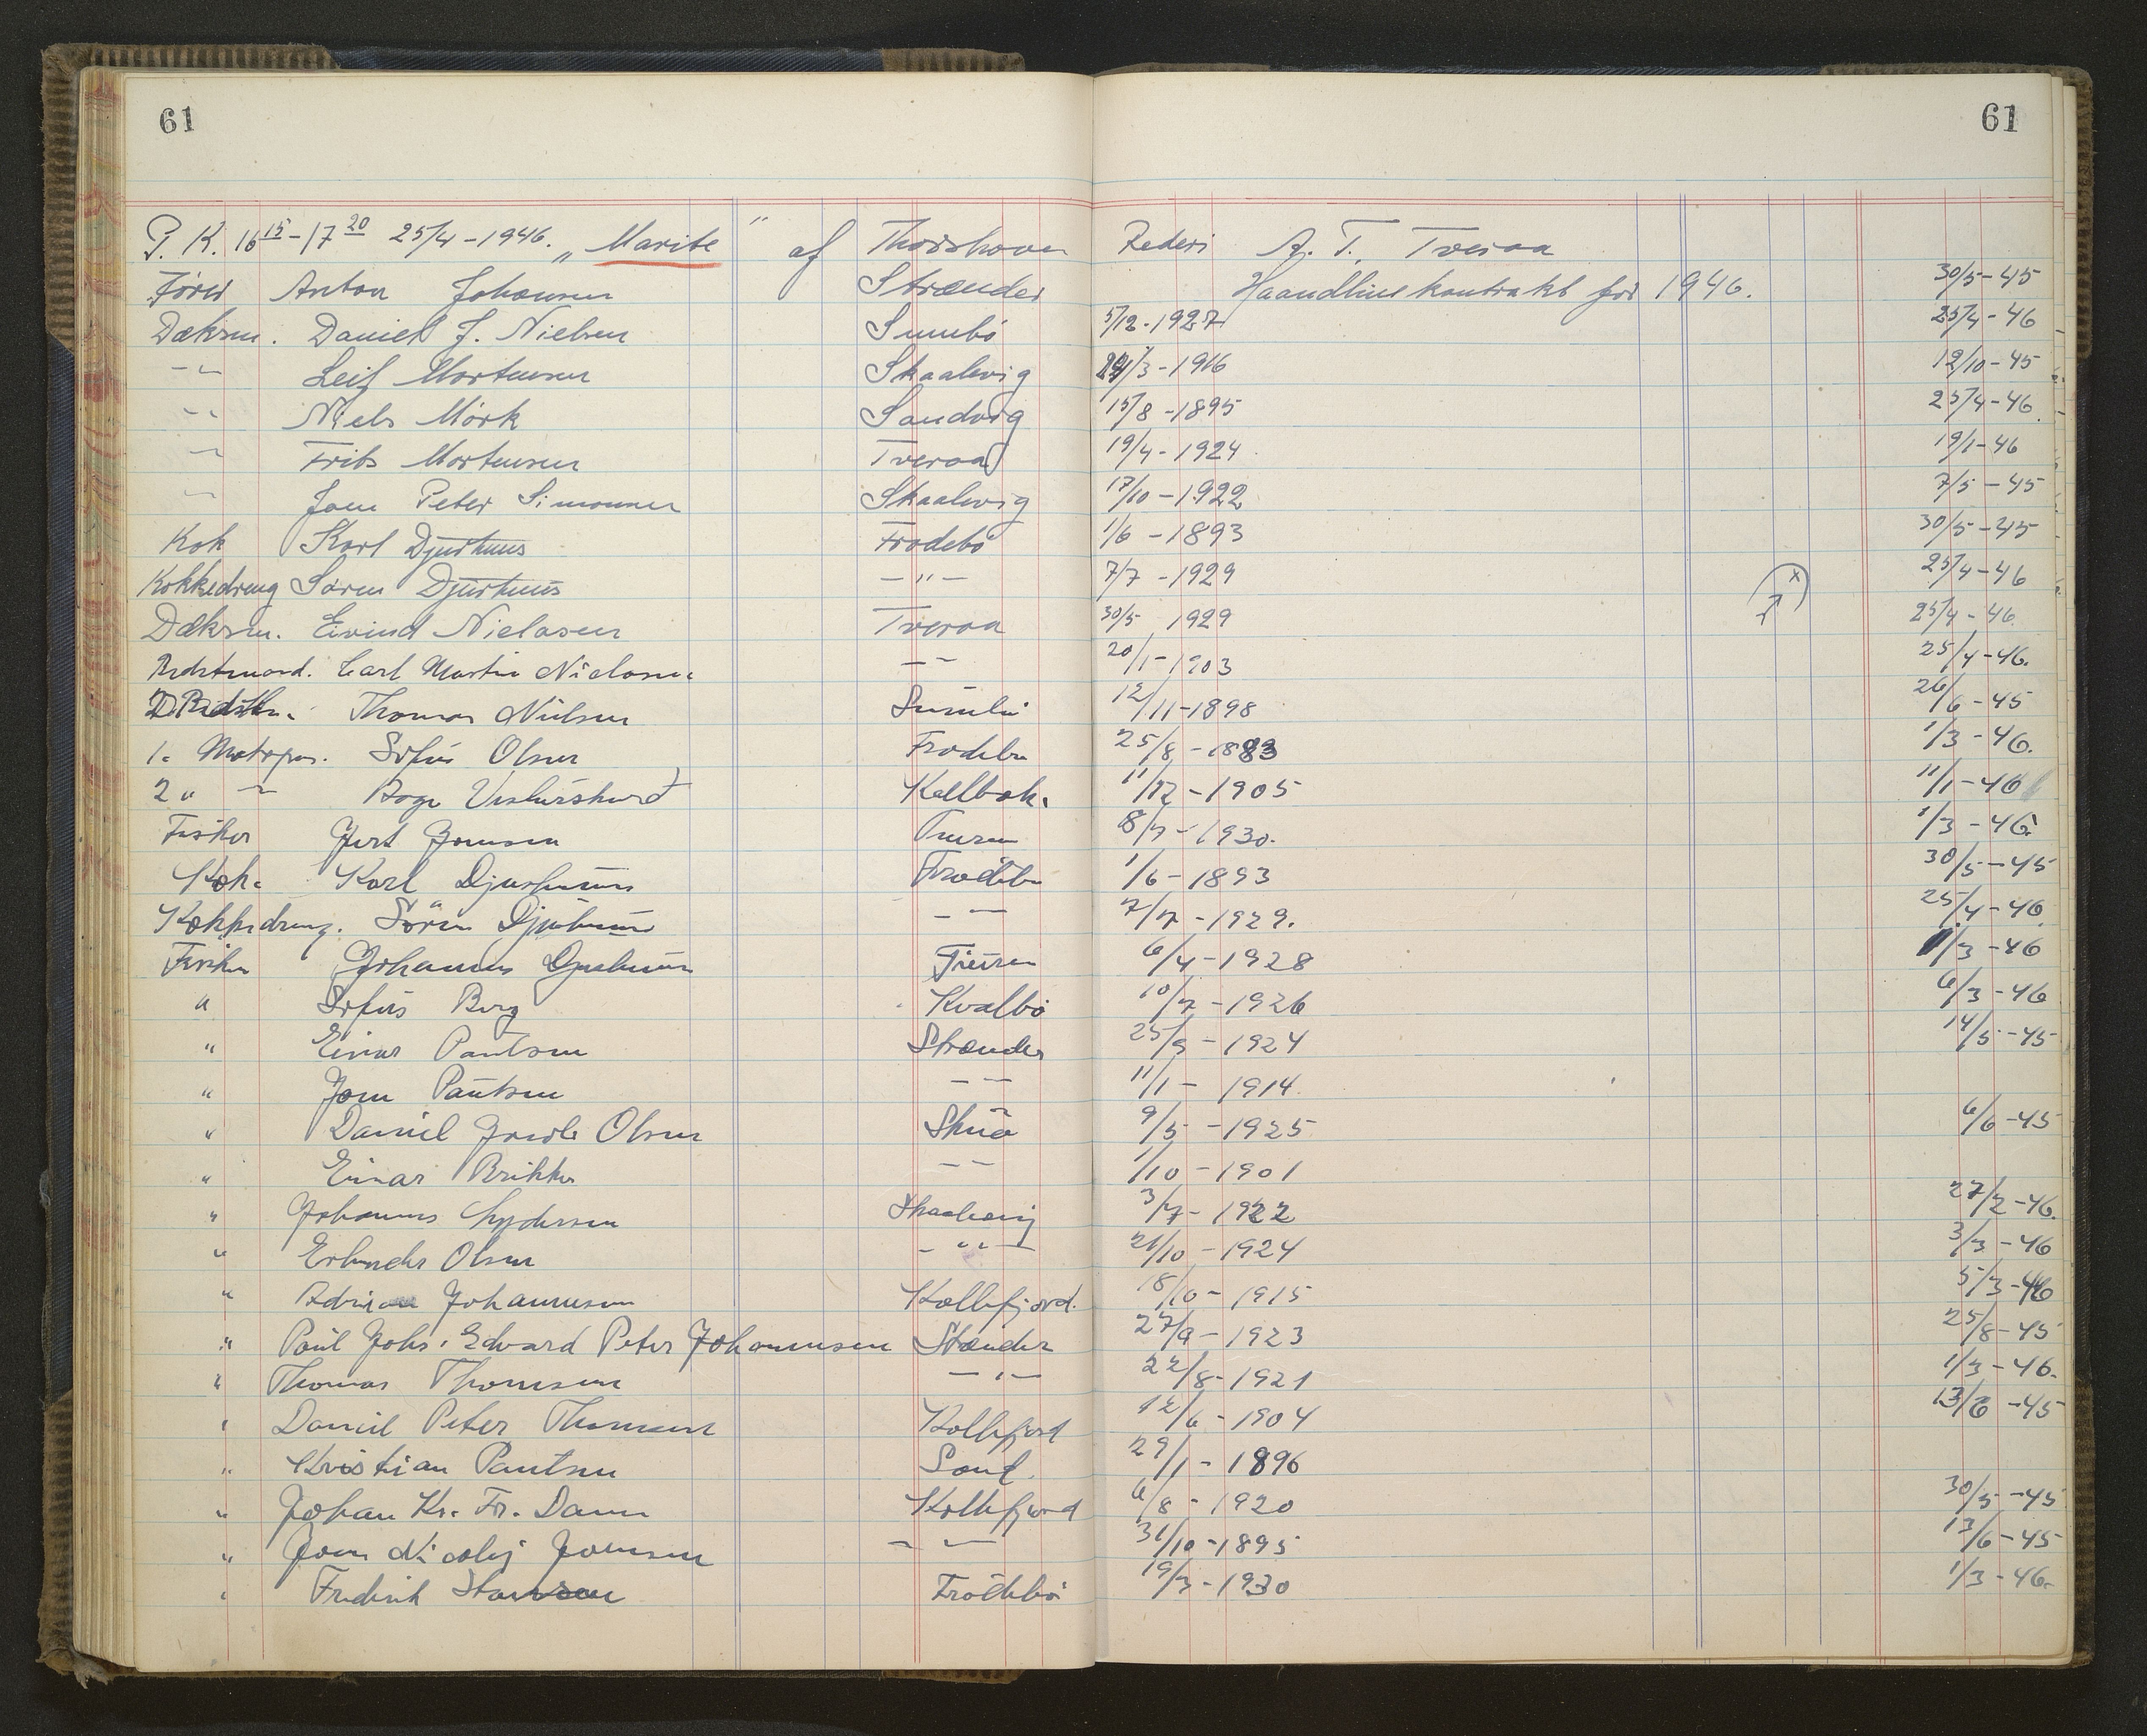 61 61
P. K. 16 15 - 17 20 25/4 - 1946. „Marite" af Thorshavn Rederi A. T. Tveraa
Förer Anton Johansen Strænder Haandlinekontrakt for 1946. 30/5 - 45
Dæksm. Daniel J. Nielsen Sumbö 5/12 - 1927 25/4 - 46
-"- Leif Mortensen Skaalevig /3 - 1916 12/10 - 45
-"- Niels Mörk Sandvig 15/8 - 1895 25/4 - 46.
-"- Frits Mortensen Tveraa 19/4 - 1924 19/1 - 46
-"- Joen Peter Simonsen Skaalevig 17/10 - 1922 7/5 - 45
Kok Karl Djurhuus Frodebö 1/6 - 1893 30/5 - 45
Kokkedreng Sören Djurhuus -"- 7/7 - 1929 x 25/4 - 46
Dæksm. Eivind Nielasen Tveraa 30/5 1929 25/4 - 46.
Bedstmand. Carl Martin Nielasen -"- 20/1 - 1903 25/4 - 46.
2 Bedstm. Thomas Nielsen Sumbö 12/11 - 1898 26/6 - 45
1. Motorpas. Sofus Olsen Frodebö 25/8 - 1883 1/3 - 46.
2 " -"- Aage Vesturshurd Kollbak. 11/12 - 1905 11/1 - 46
Fisker Gert Joensen 8/7 - 1930. 1/3 - 46.
Kok. Karl Djurhuus Frodebö 1/6 - 1893 30/5 - 45
Kokkedreng. Sören Djurhuus -"- 7/7 - 1929. 25/4 - 46.
Fisker Johannes Djurhuus 6/4 - 1928 1/3 - 46
" Sofus Berg Kvalbö 10/7 - 1926 6/3 - 46
" Einar Poulsen Strænder 25/9 - 1924 14/5 - 45
" Joen Poulsen -"- 11/1 - 1914.
" Daniel Jacob Olsen Skuö 9/5 - 1925 6/6 - 45
" Einar Brikker -"- 1/10 - 1901
" Johannes Lydersen Skaalevig 3/7 - 1922 27/2 - 46.
" Erlender Olsen -"- 21/10 - 1924 3/3 - 46
" Adrian Johannesen Kollefjord. 18/10 - 1915 5/3 - 46
" Poul Johs. Edvard Peter Johannesen Strænder 27/9 - 1923 25/8 - 45
" Thomas Thomsen -"- 22/8 - 1921 1/3 - 46.
" Daniel Peter Thomsen Kollefjord 12/6 - 1904 13/6 - 45
" Kristian Poulsen Sand. 29/1 - 1896
" Johan Kr. Fr. Dam Kollefjord 6/8 - 1920 30/5 - 45
" Joen Nicolaj Joensen -"- 31/10 - 1895 13/6 - 45
" Fredrik Frodebö 19/3 - 1930 1/3 - 46.